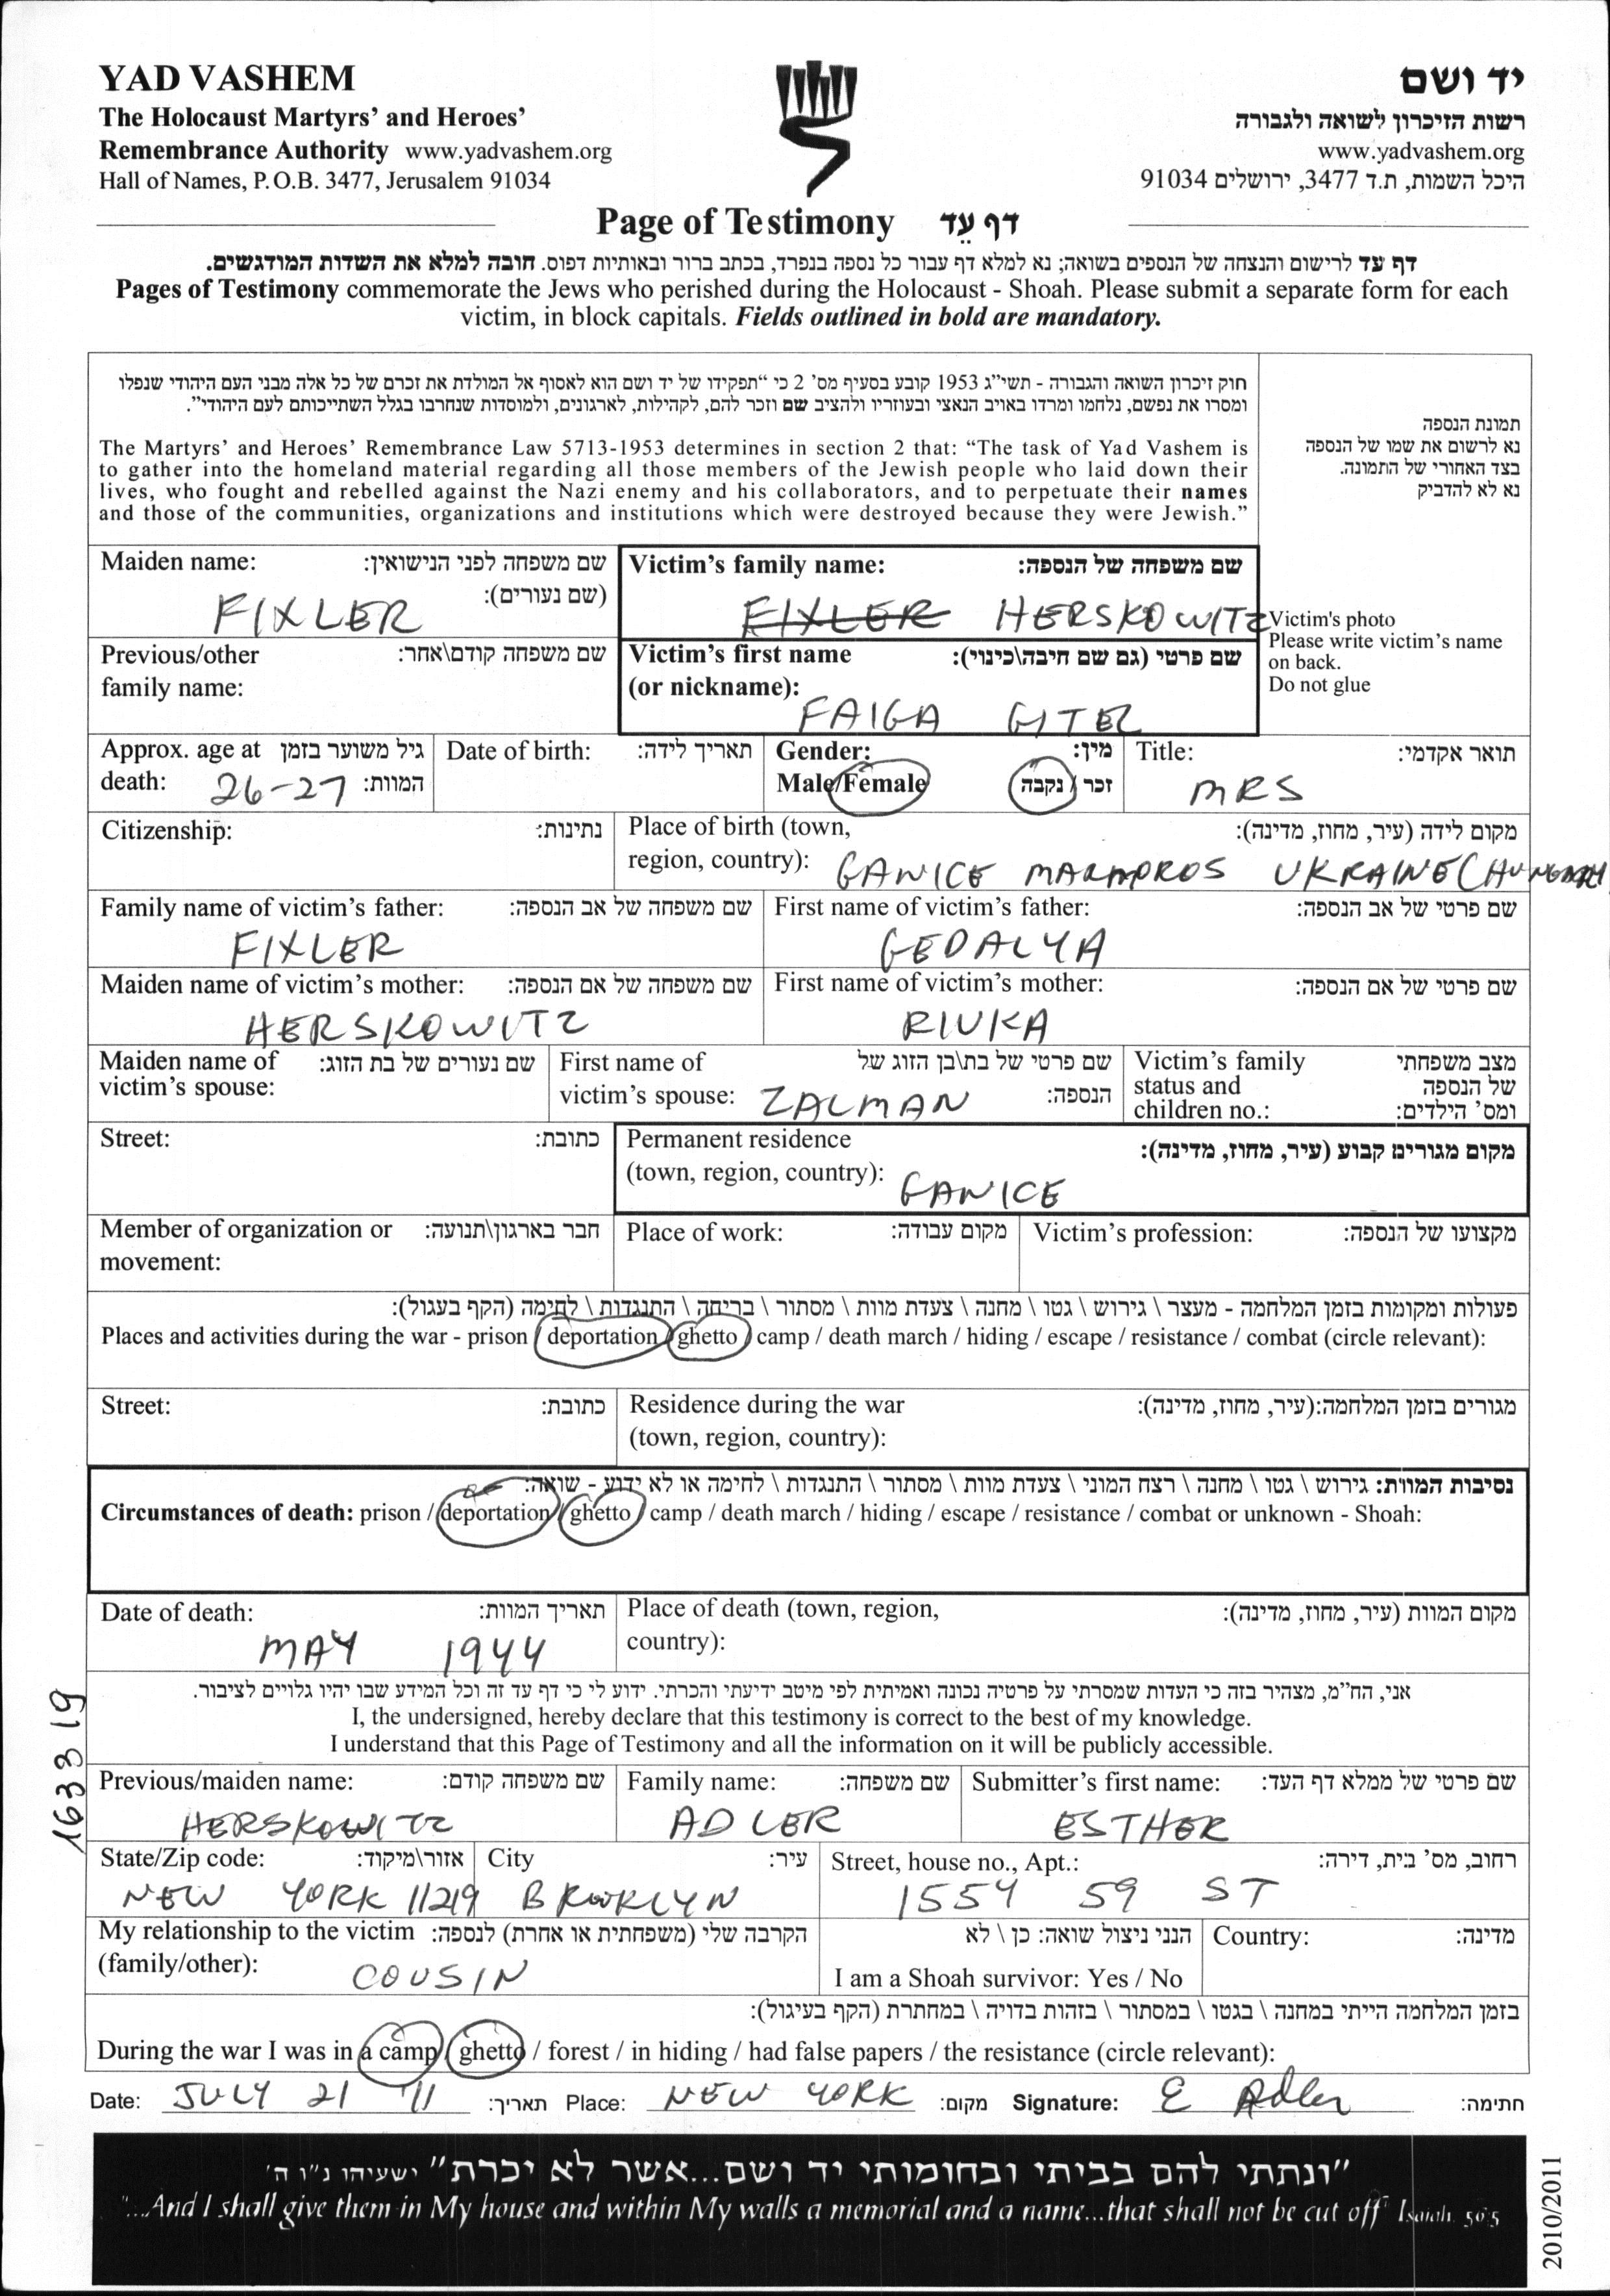 YAD VASHEM
The Holocaust Martyrs' and Heroes'
Remembrance Authority www.yadvashem.org
Hall of Names, P.O.B. 3477, Jerusalem 91034
יד ושם
רשות הזיכרון לשואה ולגבורה
www.yadvashem.org
היכל השמות, ת.ד 3477, ירושלים 91034
Page of Testimony דף עֵד
דף עד לרישום והנצחה של הנספים בשואה; נא למלא דף עבור כל נספה בנפרד, בכתב ברור ובאותיות דפוס. חובה למלא את השדות המודגשים.
Pages of Testimony commemorate the Jews who perished during the Holocaust - Shoah. Please submit a separate form for each
victim, in block capitals. Fields outlined in bold are mandatory.
חוק זיכרון השואה והגבורה - תשי"ג 1953 קובע בסעיף מס' 2 כי "תפקידו של יד ושם הוא לאסוף אל המולדת את זכרם של כל אלה מבני העם היהודי שנפלו
ומסרו את נפשם, נלחמו ומרדו באויב הנאצי ובעוזריו ולהציב שם וזכר להם, לקהילות, לארגונים, ולמוסדות שנחרבו בגלל השתייכותם לעם היהודי".
The Martyrs' and Heroes' Remembrance Law 5713-1953 determines in section 2 that: "The task of Yad Vashem is
to gather into the homeland material regarding all those members of the Jewish people who laid down their
lives, who fought and rebelled against the Nazi enemy and his collaborators, and to perpetuate their names
and those of the communities, organizations and institutions which were destroyed because they were Jewish."
תמונת הנספה
נא לרשום את שמו של הנספה
בצד האחורי של התמונה.
נא לא להדביק
Victim's photo
Please write victim's name
on back.
Do not glue
Maiden name: שם משפחה לפני הנישואין:
(שם נעורים):
FIXLER
Victim's family name: שם משפחה של הנספה:
FIXLER HERSKOWITZ
Previous/other שם משפחה קודם\אחר:
family name:
Victim's first name שם פרטי (גם שם חיבה\כינוי):
(or nickname):
FAIGA GITEL
Approx. age at גיל משוער בזמן
death: 26-27 המוות:
Date of birth: תאריך לידה:
Gender: מין:
Male/Female זכר / נקבה
Title: תואר אקדמי:
MRS
Citizenship: נתינות:
Place of birth (town, מקום לידה (עיר, מחוז, מדינה):
region, country): GANICE MARMOROS UKRAINE (HUNGARY
Family name of victim's father: שם משפחה של אב הנספה:
FIXLER
First name of victim's father: שם פרטי של אב הנספה:
GEDALYA
Maiden name of victim's mother: שם משפחה של אם הנספה:
HERSKOWITZ
First name of victim's mother: שם פרטי של אם הנספה:
RIVKA
Maiden name of שם נעורים של בת הזוג:
victim's spouse:
First name of שם פרטי של בת\בן הזוג של
victim's spouse: ZALMAN הנספה:
Victim's family מצב משפחתי
status and של הנספה
children no.: ומס' הילדים:
Street: כתובת:
Permanent residence מקום מגורים קבוע (עיר, מחוז, מדינה):
(town, region, country): GANICE
Member of organization or חבר בארגון\תנועה:
movement:
Place of work: מקום עבודה:
Victim's profession: מקצועו של הנספה:
פעולות ומקומות בזמן המלחמה - מעצר \ גירוש \ גטו \ מחנה \ צעדת מוות \ מסתור \ בריחה \ התנגדות \ לחימה (הקף בעגול):
Places and activities during the war - prison / deportation / ghetto / camp / death march / hiding / escape / resistance / combat (circle relevant):
Street: כתובת:
Residence during the war מגורים בזמן המלחמה:(עיר, מחוז, מדינה):
(town, region, country):
נסיבות המוות: גירוש \ גטו \ מחנה \ רצח המוני \ צעדת מוות \ מסתור \ התנגדות \ לחימה או לא ידוע - שואה:
Circumstances of death: prison / deportation / ghetto / camp / death march / hiding / escape / resistance / combat or unknown - Shoah:
Date of death: תאריך המוות:
MAY 1944
Place of death (town, region, מקום המוות (עיר, מחוז, מדינה):
country):
אני, הח"מ, מצהיר בזה כי העדות שמסרתי על פרטיה נכונה ואמיתית לפי מיטב ידיעתי והכרתי. ידוע לי כי דף עד זה וכל המידע שבו יהיו גלויים לציבור.
I, the undersigned, hereby declare that this testimony is correct to the best of my knowledge.
I understand that this Page of Testimony and all the information on it will be publicly accessible.
163319
Previous/maiden name: שם משפחה קודם:
HERSKOWITZ
Family name: שם משפחה:
ADLER
Submitter's first name: שם פרטי של ממלא דף העד:
ESTHER
State/Zip code: אזור\מיקוד:
NEW YORK 11219
City עיר:
BROOKLYN
Street, house no., Apt.: רחוב, מס' בית, דירה:
1554 59 ST
My relationship to the victim הקרבה שלי (משפחתית או אחרת) לנספה:
(family/other): COUSIN
הנני ניצול שואה: כן \ לא
I am a Shoah survivor: Yes / No
Country: מדינה:
בזמן המלחמה הייתי במחנה \ בגטו \ במסתור \ בזהות בדויה \ במחתרת (הקף בעיגול):
During the war I was in a camp / ghetto / forest / in hiding / had false papers / the resistance (circle relevant):
Date: JULY 21 '11 תאריך: Place: NEW YORK מקום: Signature: E Adler חתימה:
"ונתתי להם בביתי ובחומותי יד ושם...אשר לא יכרת" ישעיהו נ"ו ה'
"...And I shall give them in My house and within My walls a memorial and a name...that shall not be cut off" Isaiah 56:5
2010/2011